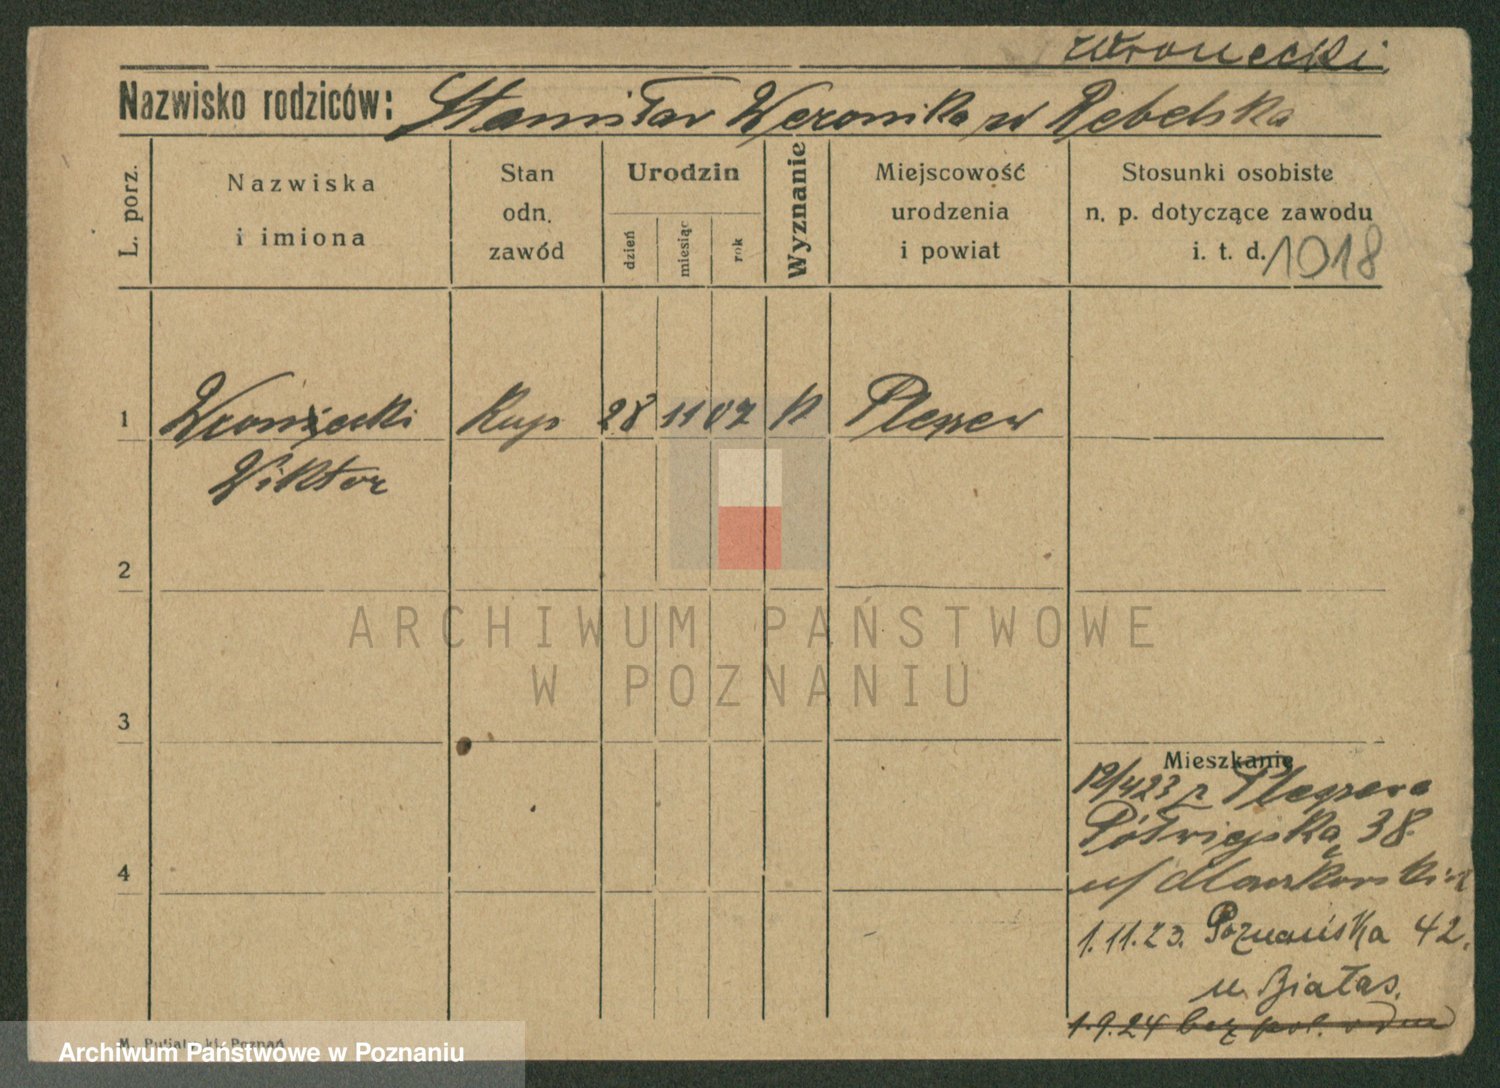 Wronecki.
Nazwisko rodziców: Stanisław Weronika w Rębelska
L. porz.
Nazwiska
i imiona
Stan
odn.
zawód
Urodzin
dzień
miesiąc
rok
Wyznanie
Miejscowość
urodzenia
i powiat
Stosunki osobiste
n. p. dotyczące zawodu
i. t. d. 1018
1 Wroniecki Kup 28 11 02 k Pleszew
Wiktor
2
3
4
ARCHIWUM PAŃSTWOWE
W POZNANIU
Mieszkanie
12/423 z Pleszewa
Półwiejska 38.
u/
1.11.23. Poznańska 42.
u. Białas.
1.9.24 bez pol. odm
M. Putiatycki, Poznań
Archiwum Państwowe w Poznaniu